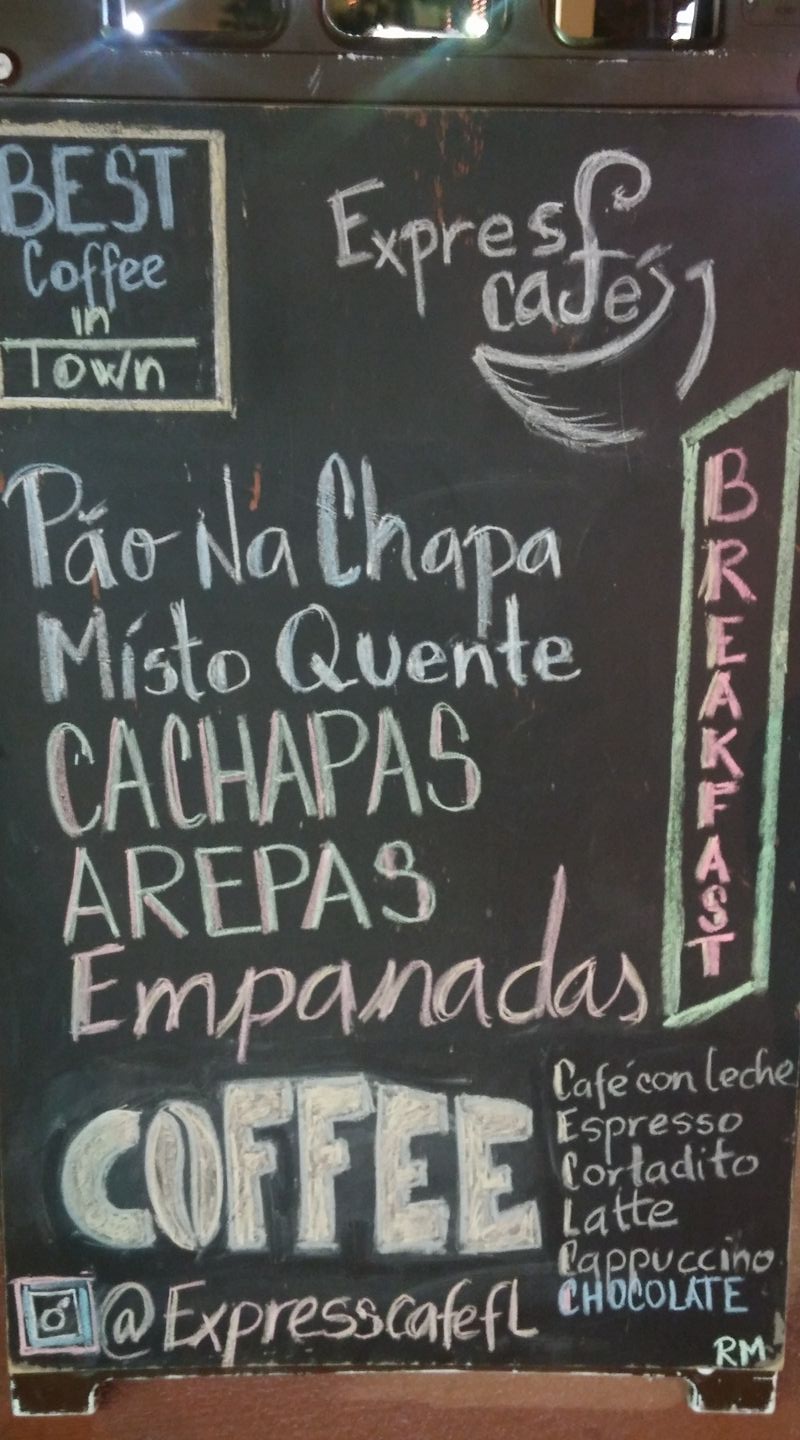 BEST
Coffee
in
Town
Express
café
Páo Na Chapa
Místo Quente
CACHAPAS
AREPAS
Empanadas
BREAKFAST
COFFEE
Café con leche
Espresso
Cortadito
Latte
Cappuccino
CHOCOLATE
@ExpresscafefL
RM